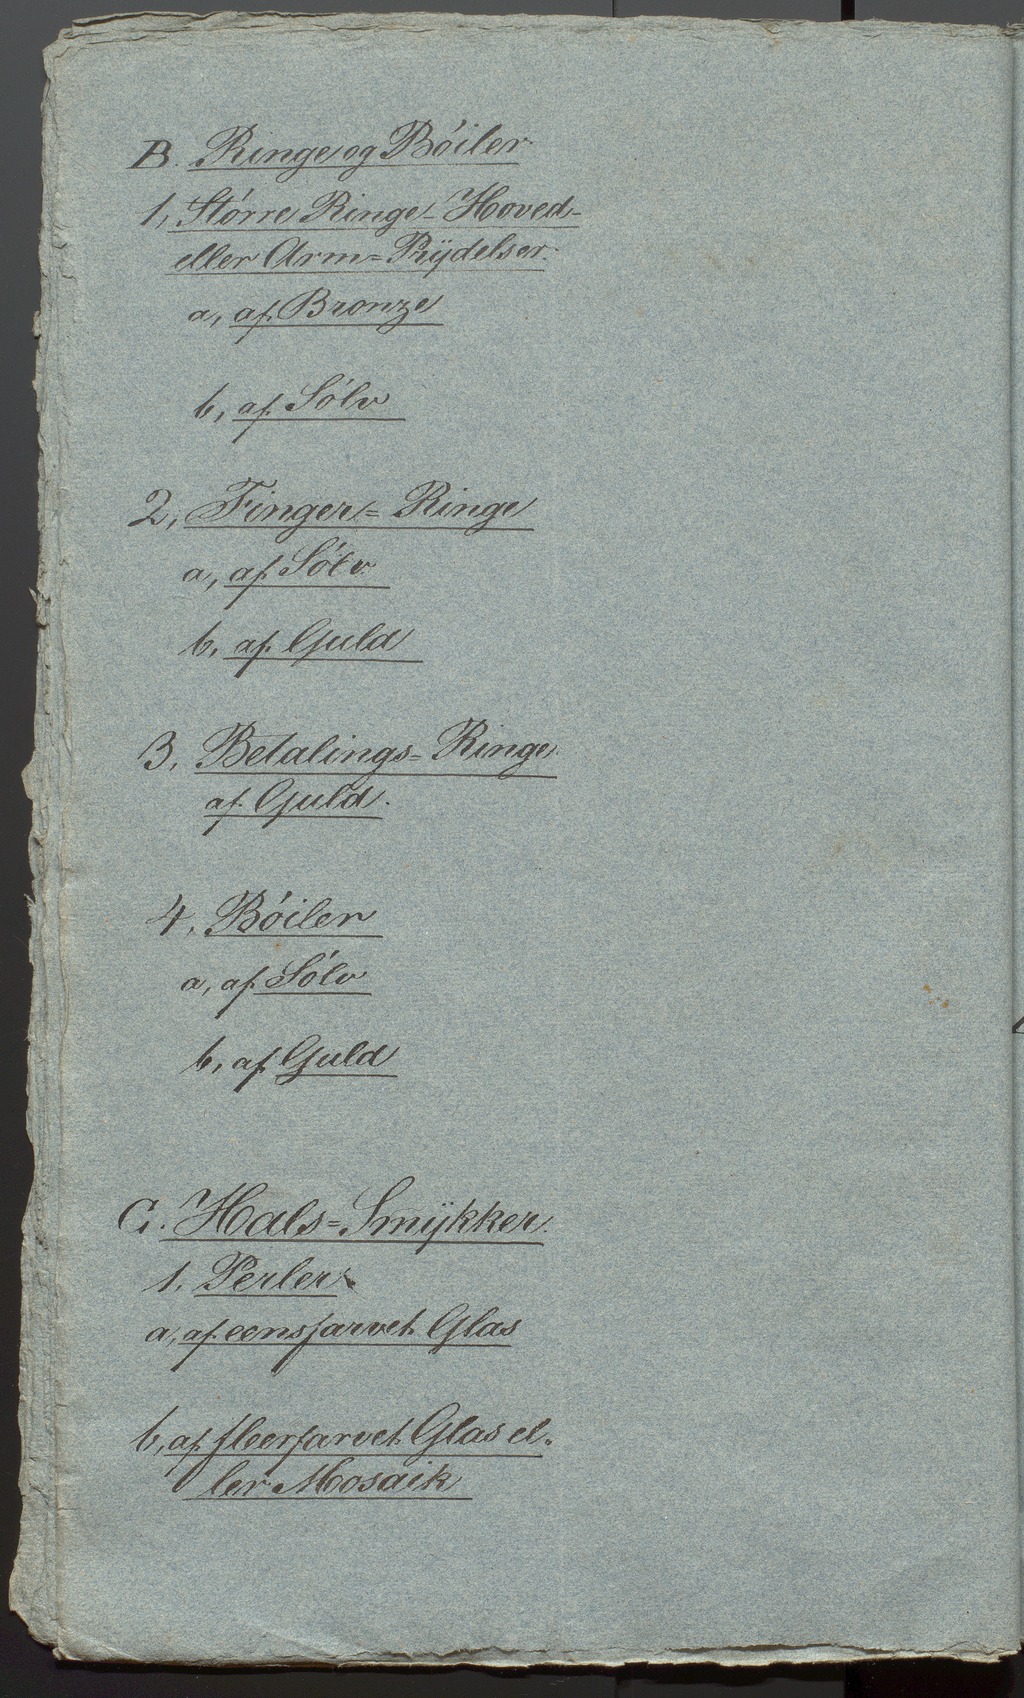 B. Ringe og Bóiler
1, Större Ringe - Hoved-
eller Arm=Prÿdelser.
a, af Bronze
b, af Sölv
2, Finger=Ringe
a, af Sölv
b, af Guld
3, Betalings=Ringe
af Guld.
4, Bóiler
a, af Sölv
b, af Guld
C. Hals=Smÿkker.
1. Perler
a, af eensfarvet Glas
b, af fleerfarvet Glas el-
ler Mosaik